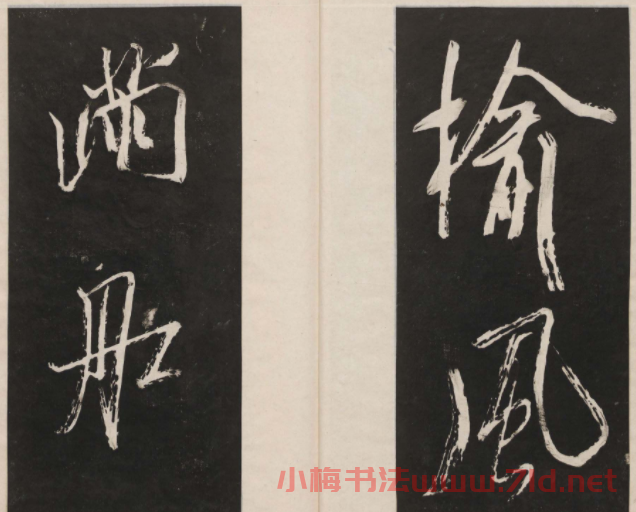 榆風
滿船
小梅书法www.7ld.net